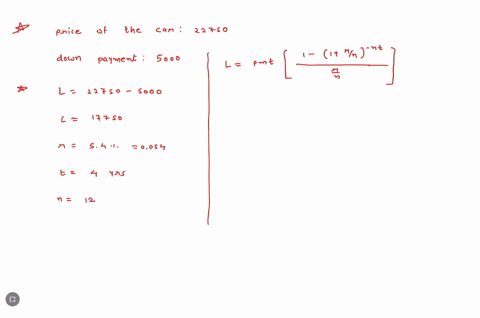 price of the car : 22750
down payment : 5000
L = 22750 - 5000
L = 17750
r = 5.4 %. = 0.054
t = 4 yrs
n = 12
L = pmt [ 1 - (1 + r/n)^-nt / r/n ]